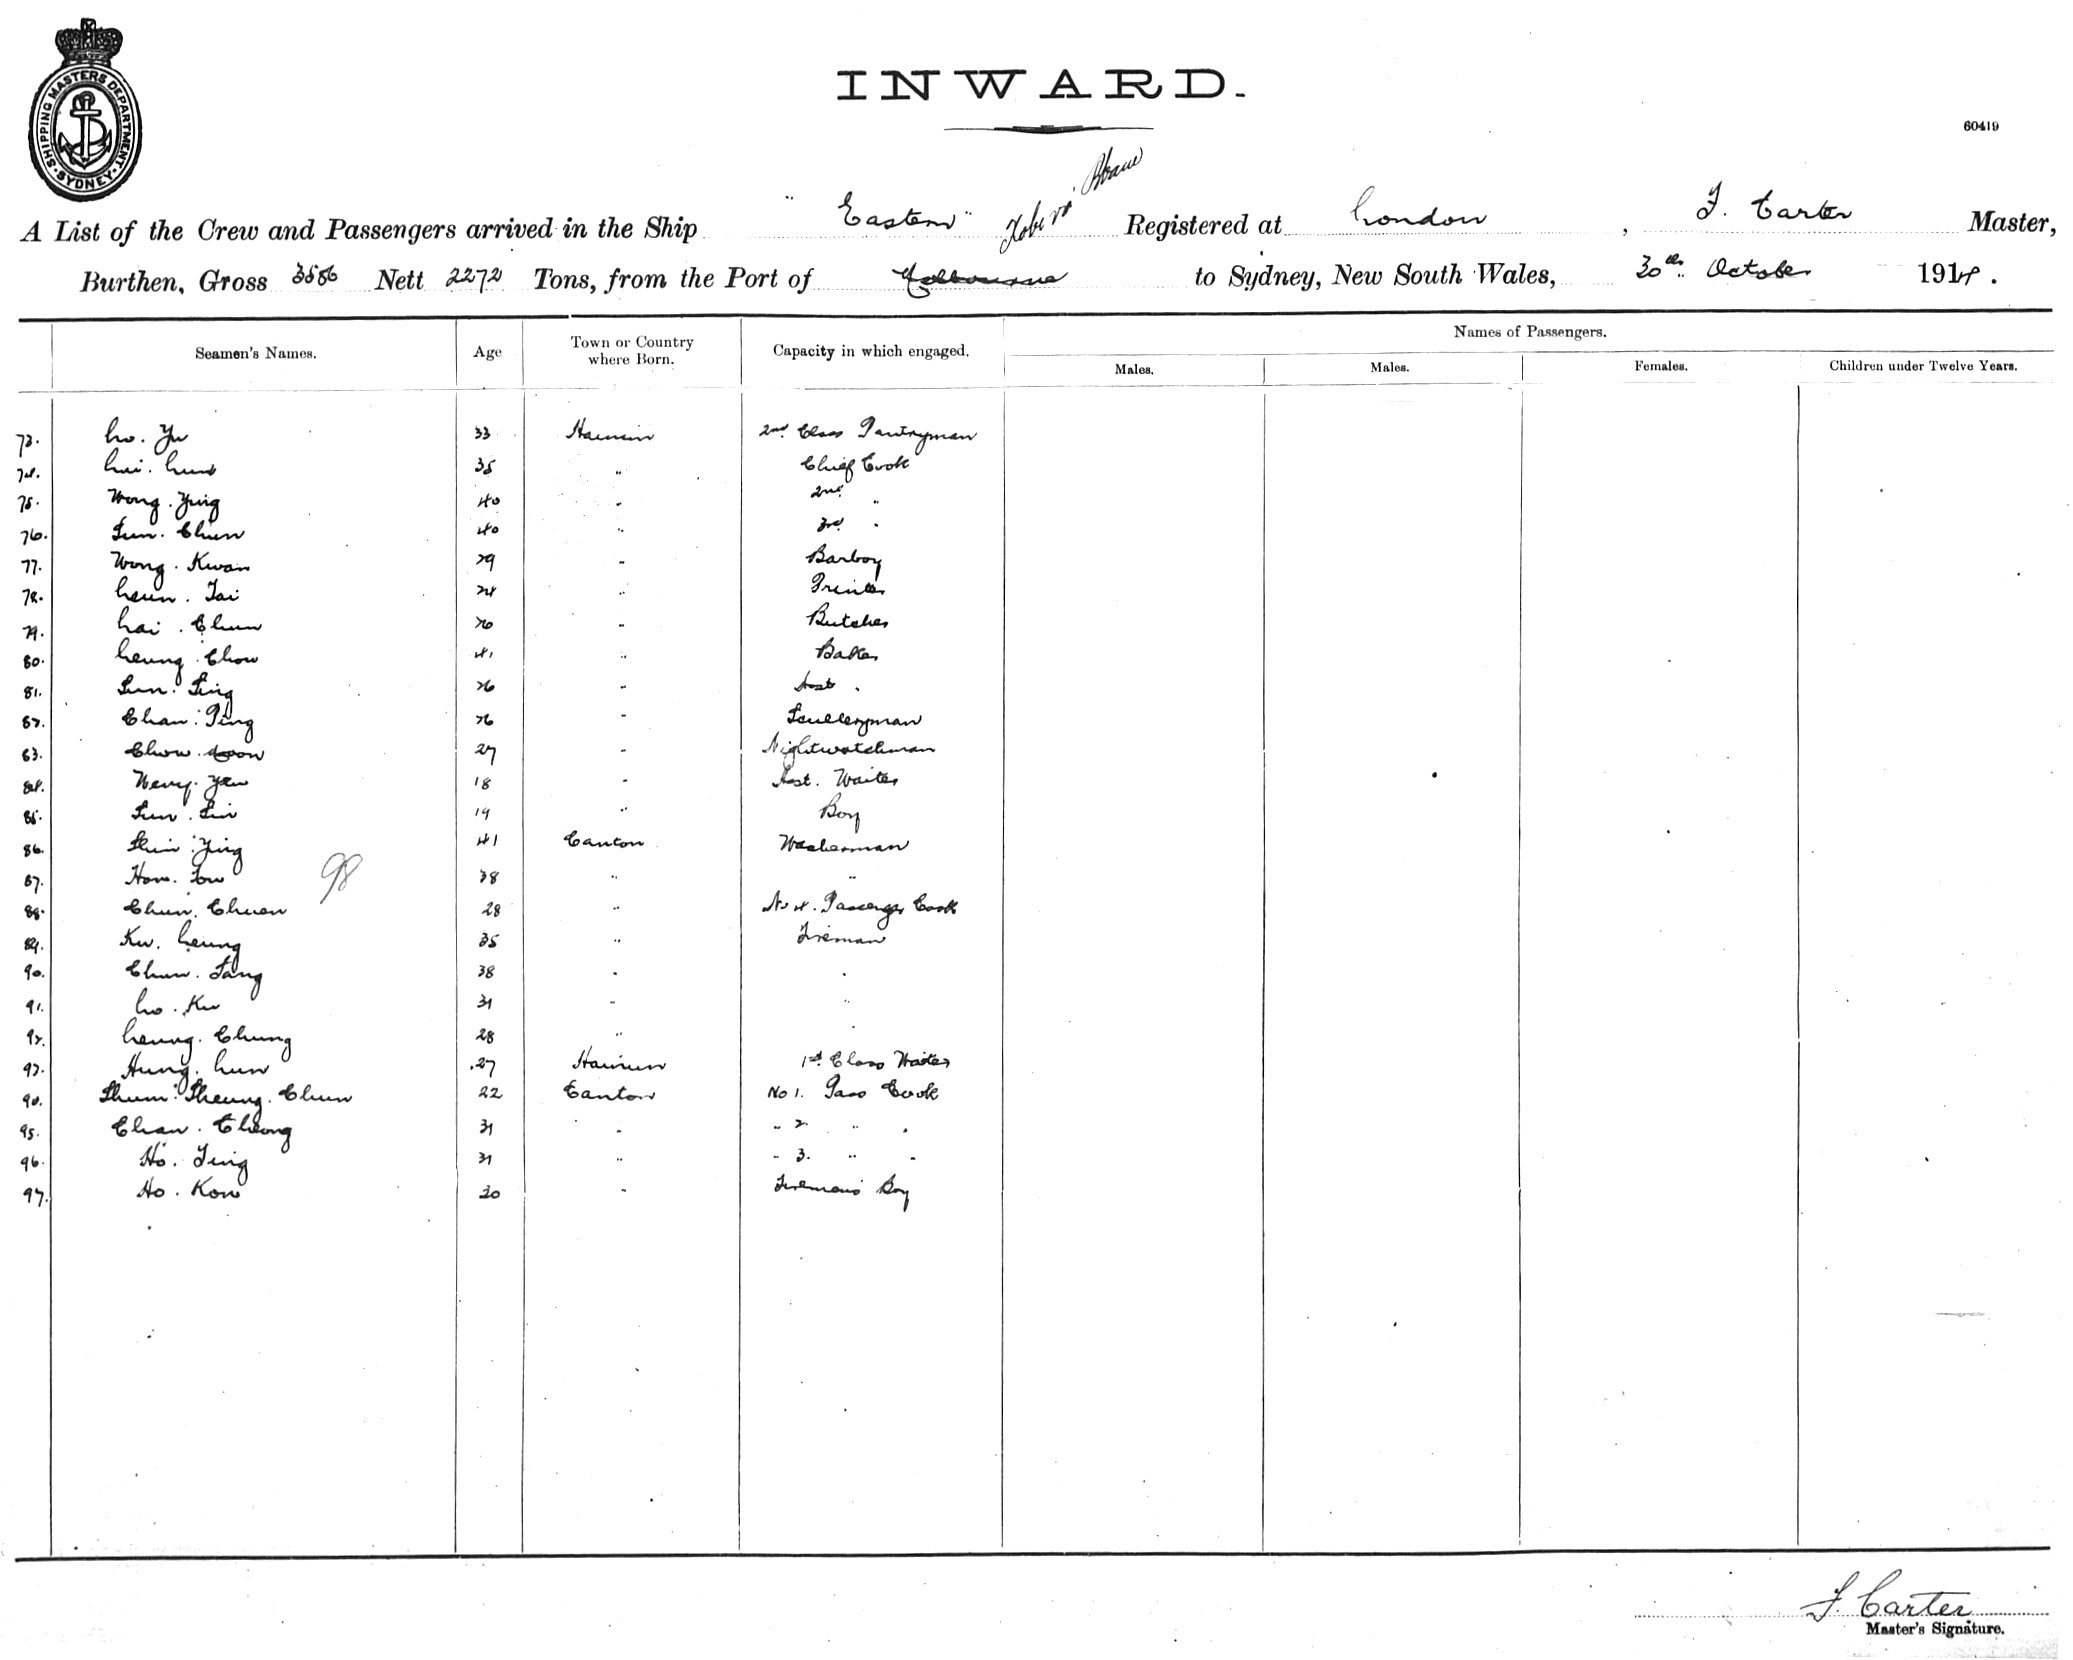 SHIPPING MASTERS DEPARTMENT. SYDNEY.
INWARD.
60419
A List of the Crew and Passengers arrived in the Ship "Eastern" Registered at London, F. Carter Master,
Burthen, Gross 3586 Nett 2272 Tons, from the Port of Melbourne to Sydney, New South Wales, 30th October 1914.
Seamen's Names. Age Town or Country where Born. Capacity in which engaged. Names of Passengers.
Males. Males. Females. Children under Twelve Years.
73. Lo. Yu 33 2nd Class Pantryman
74. Lai. 35 " Chief Cook
75. Wong. Ying 40 " 2nd "
76. 40 " 3rd "
77. Wong. Kwan 29 " Barboy
78. Leun. Tai 24 " Printer
79. Lai. Chun 26 " Butcher
80. Leung. Chow 41 " Baker
81. 26 " Asst "
82. Chan. Ping 26 " Sculleryman
83. Chow. 27 " Nightwatchman
84. 18 " Asst. Waiter
85. 19 " Boy
86. Ying 41 Canton Washerman
87. 38 " "
88. Chun. Chuen 28 " No 4. Passenger Cook
89. Ku. Leung 35 " Fireman
90. Chun. 38 " "
91. Lo. Ku 31 " "
92. Leung. Chung 28 " "
93. Hung. Lun 27 1st Class Waiter
94. Shum. Sheung. Chun 22 Canton No 1. Pass Cook
95. Chan. Cheong 31 " " 2 " "
96. Ho. 31 " " 3. " "
97. Ho. Kow 20 " Fireman's Boy
98
F. Carter
Master's Signature.